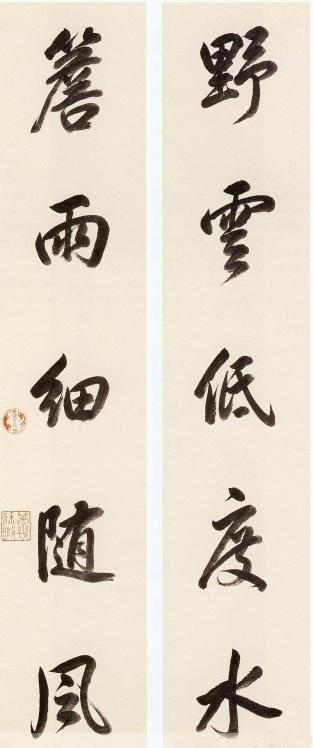 野雲低度水
簷雨細随風